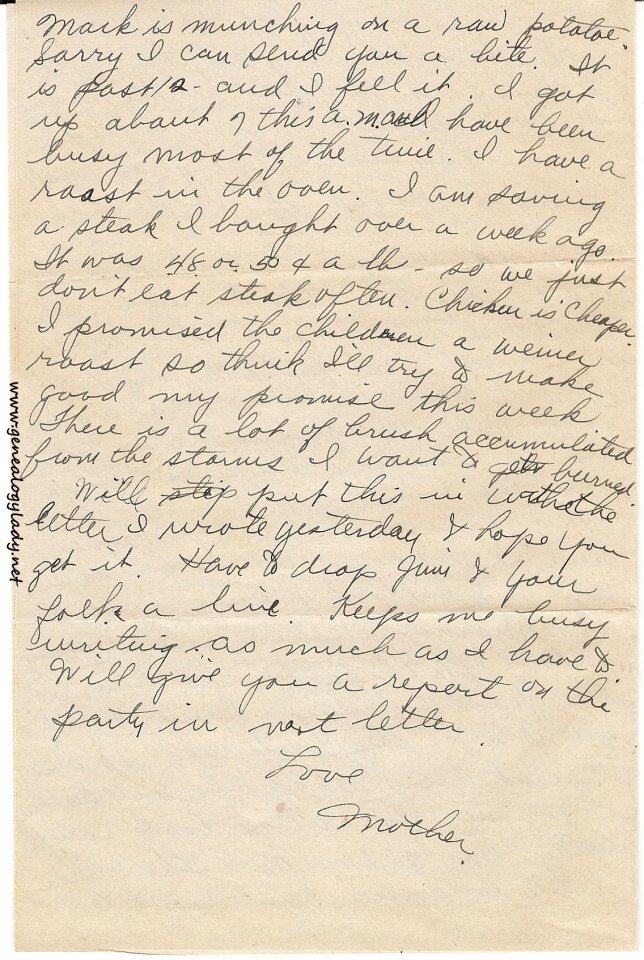 Mack is munching on a raw potatoe.
Sorry I can send you a bite. It
is past 12 - and I fell it. I got
up about 7 this a.m. and have been
busy most of the time. I have a
roast in the oven. I am saving
a steak I bought over a week ago.
It was 48 or 50 ¢ a lb - so we just
don't eat steak often. Chicken is cheaper.
I promised the children a weiner
roast so think I'll try to make
good my promise this week
There is a lot of brush accumulated
from the storms I want to get burned.
Will stip put this in with the
letter I wrote yesterday & hope you
get it. Have to drop Jim & your
folks a line. Keeps me busy
writing as much as I have to
Will give you a report on the
party in next letter.
Love
Mother.
www.genealogylady.net